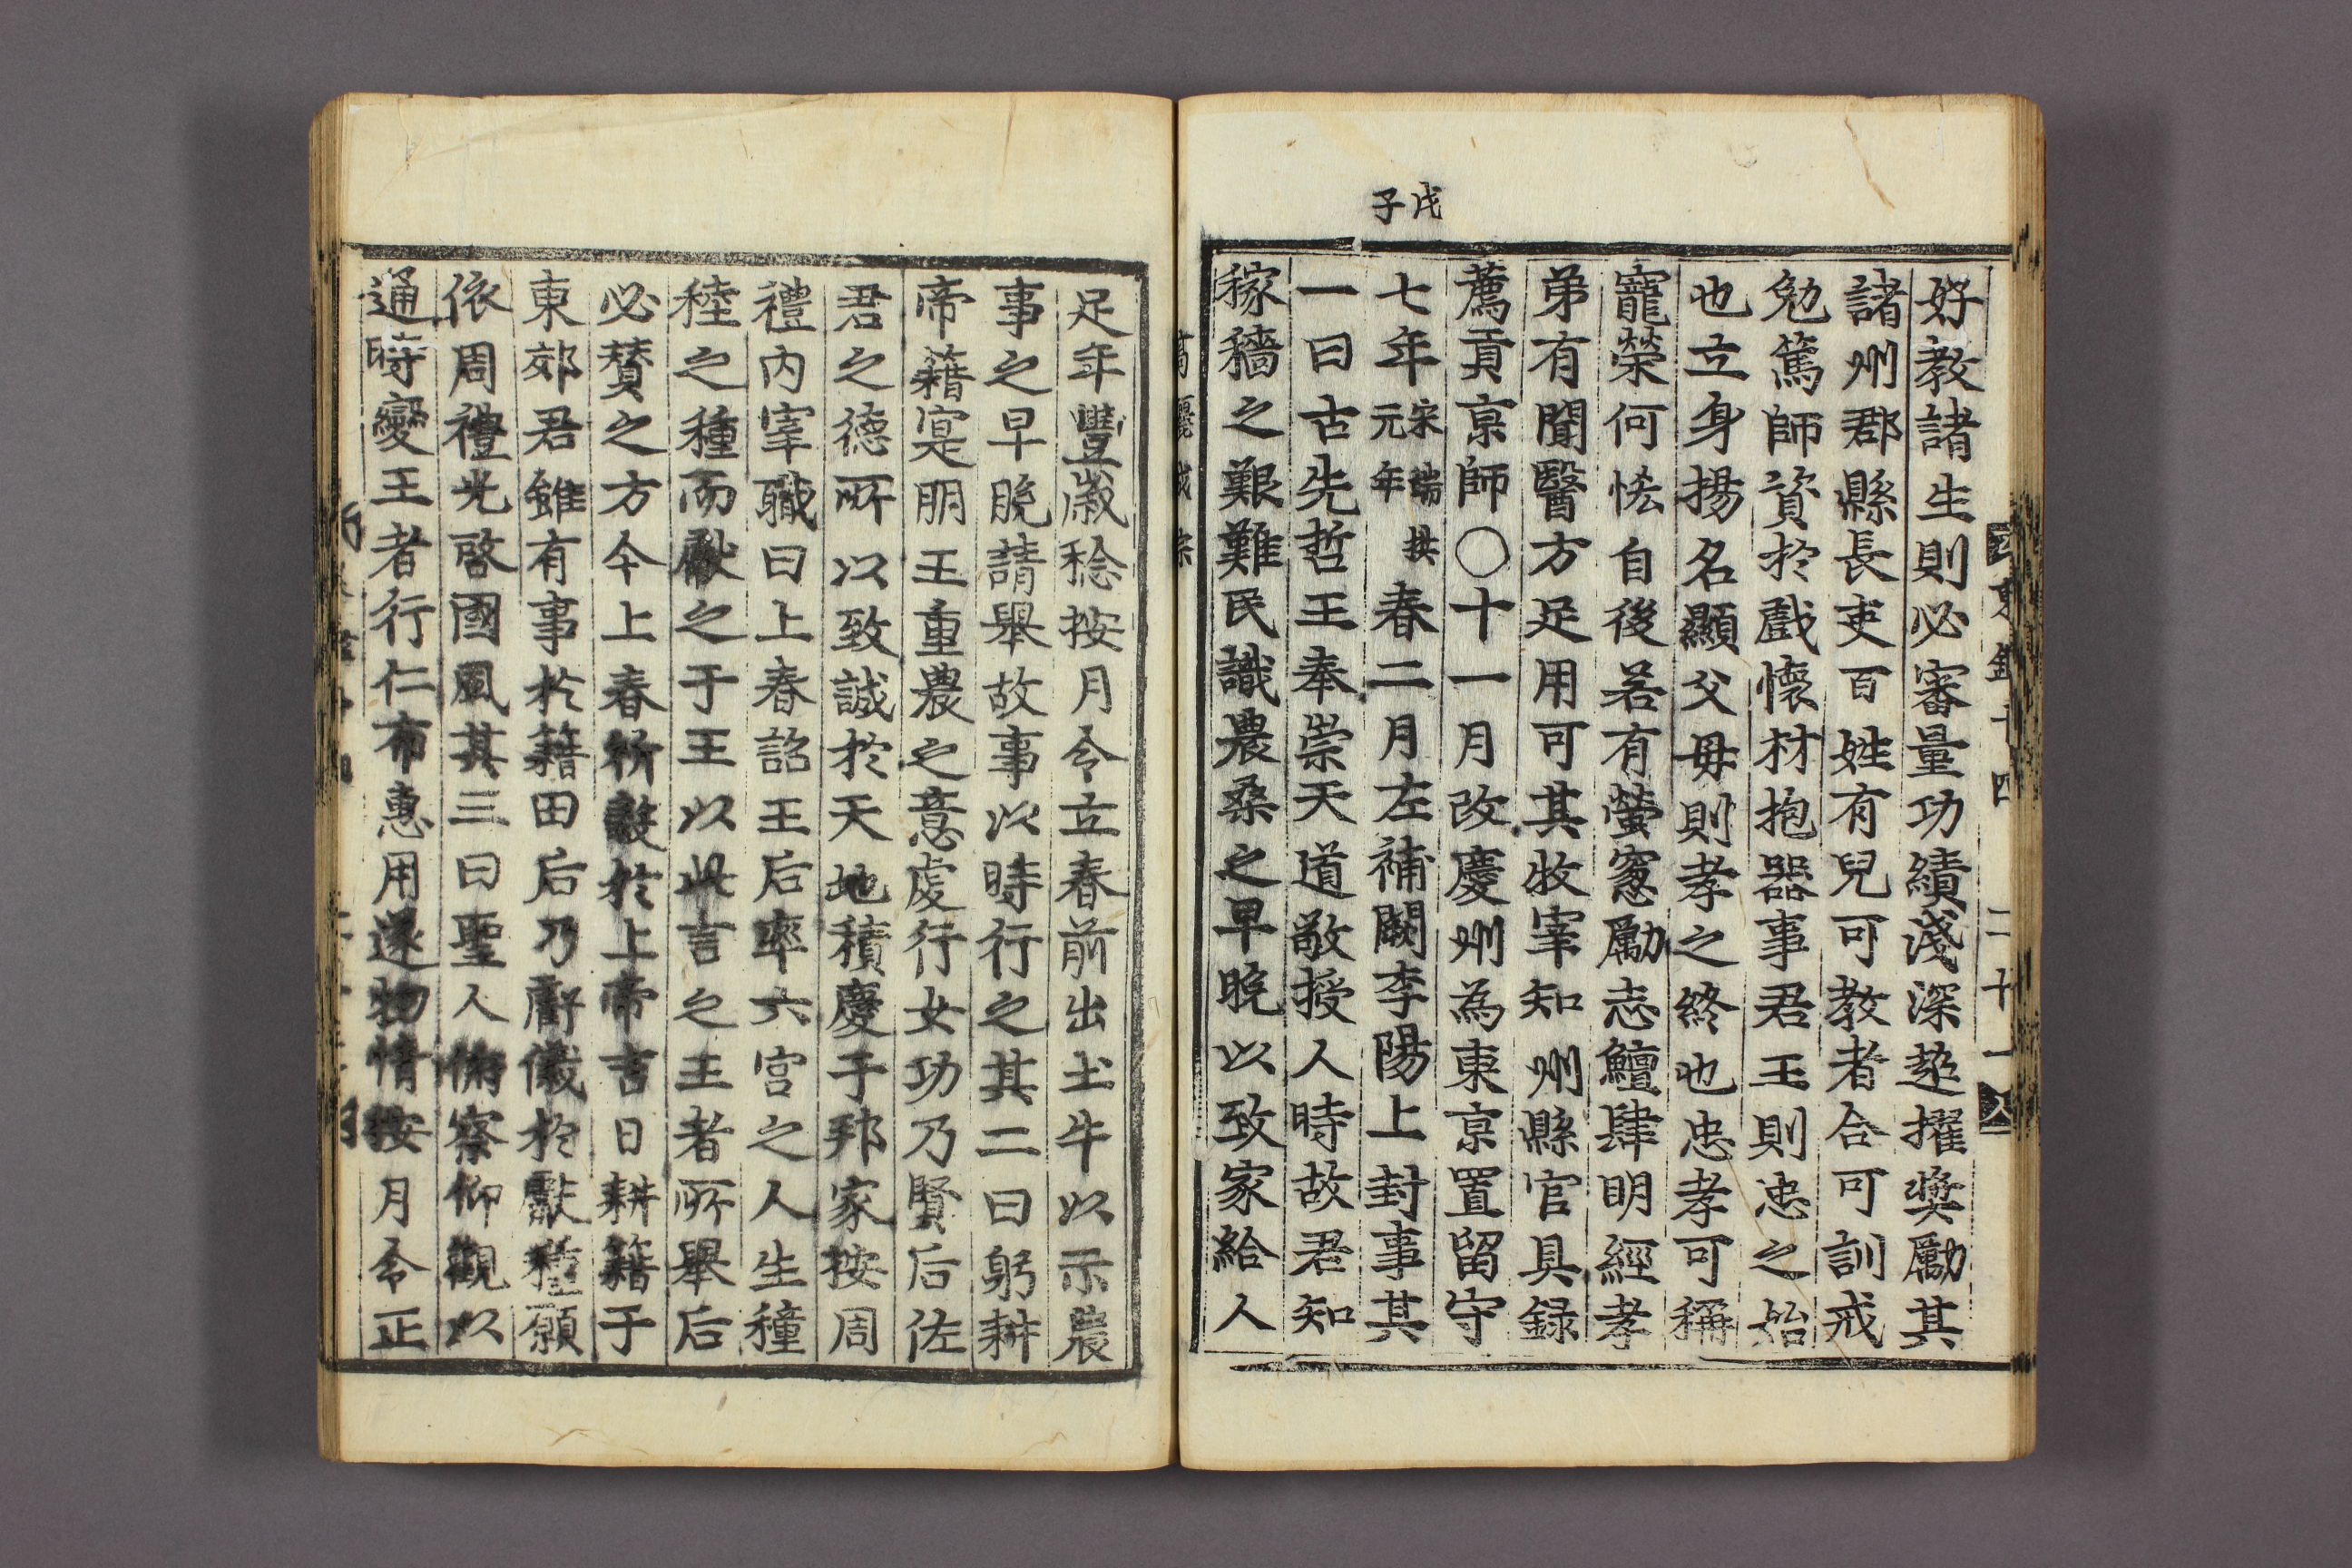 戊子
好教諸生則必審量功績淺深趂擢奬勵其
諸州郡縣長吏百姓有兒可教者合可訓戒
勉篤師資於戲懷材抱器事君王則忠之始
也立身揚名顯父母則孝之終也忠孝可稱
寵榮何恡自後若有螢窓勵志鱣肆明經孝
弟有聞醫方足用可其牧宰知州縣官具録
薦貢京師〇十一月改慶州為東京置留守
七年宋端拱元年春二月左補闕李陽上封事其
一曰古先哲王奉崇天道敬授人時故君知
稼穡之艱難民識農桑之早晚以致家給人
足年豐歲稔按月令立春前出土牛以示農
事之早晚請舉故事以時行之其二曰躬耕
帝籍寔明王重農之意虔行女功乃賢后佐
君之德所以致誠於天地積慶于邦家按周
禮內宰職曰上春詔王后率六宮之人生穜
稑之種而獻之于王以此言之王者所舉后
必賛之方今上春祈穀於上帝吉日耕籍于
東郊君雖有事於籍田后乃虧儀於獻種願
依周禮光啓國風其三曰聖人俯察仰觀以
通時變王者行仁布惠用遂物情按月令正